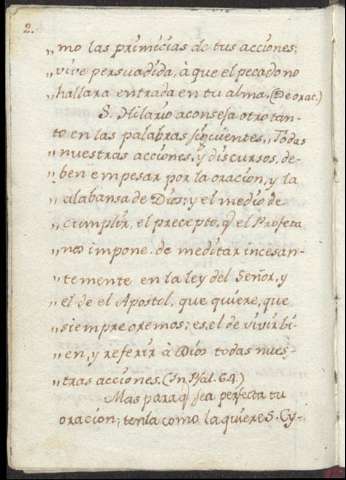 2.
„mo las primicias de tus acciones;
„vive persuadida, à que el pecado no
„hallara entrada en tu alma. (De orac.)
S. Hilario aconseja otro tan-
to en las palabras siguientes. „Todas
„nuestras acciones, y discursos, de-
„ben empesar por la oracion, y la
„alabansa de Dios; y el medio de
„cumplir, el precepto, q̃ el Profeta
„nos impone de meditar incesan-
„temente en la ley del Señor, y
„el de el Apostol, que quiere, que
„siempre oremos; es, el de vivir bi-
„en, y referir à Dios todas nues-
„tras acciones. (In Psal. 64.)
Mas para q̃ sea perfecta tu
oracion; tenla como la quiere S. Cy-